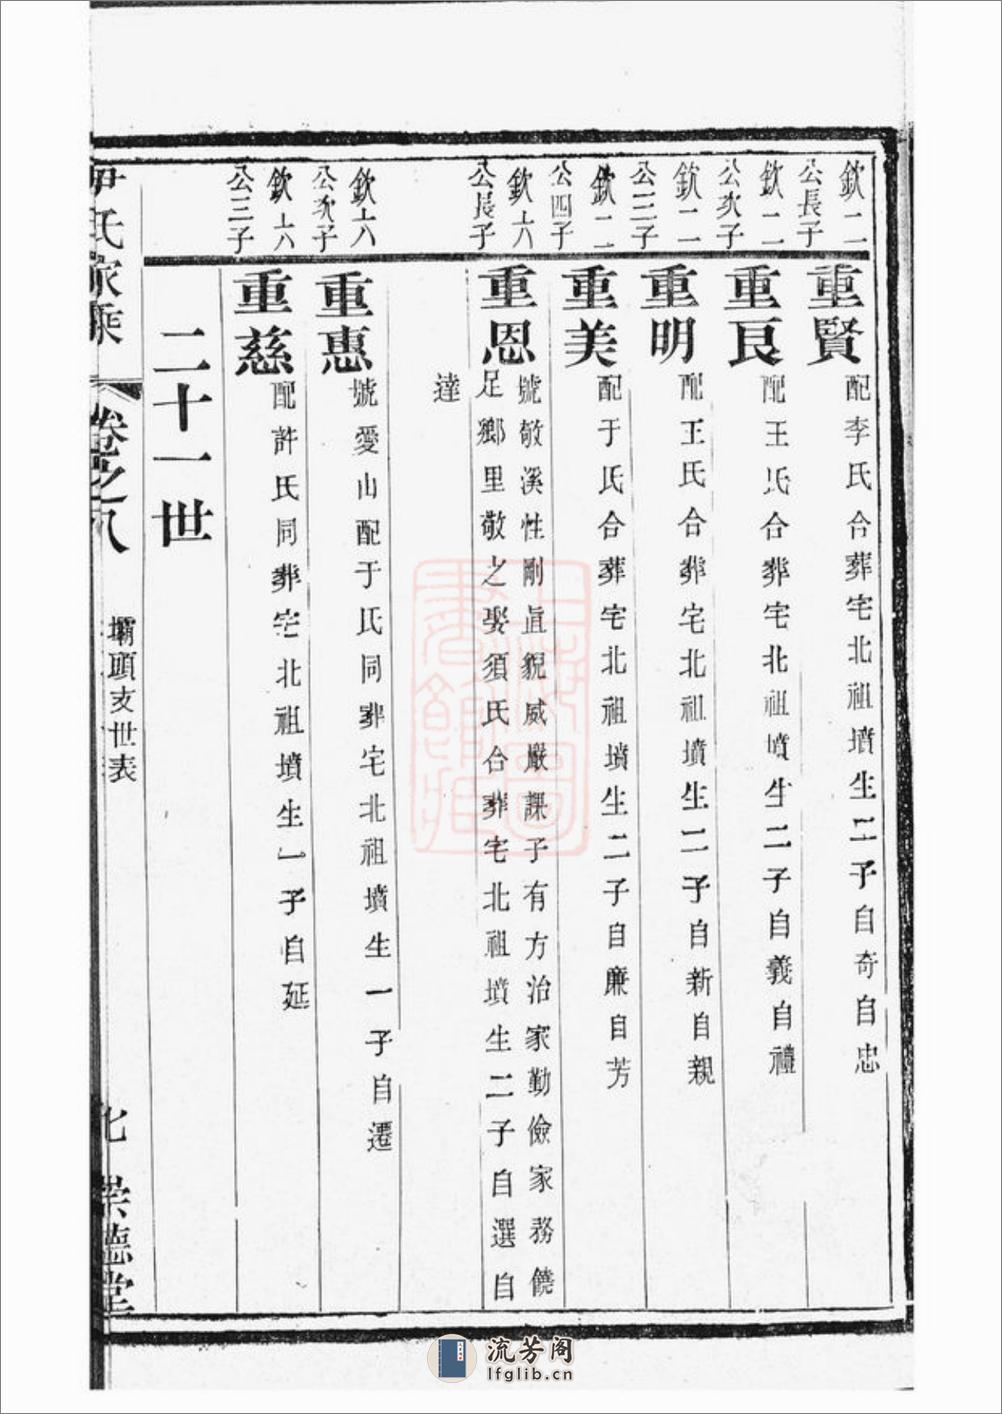 欽二
公長子
重賢
配李氏合葬宅北祖墳生二子自奇自忠
欽二
公次子
重良
配王氏合葬宅北祖墳生二子自義自禮
欽二
公三子
重明
配王氏合葬宅北祖墳生二子自新自親
欽二
公四子
重美
配于氏合葬宅北祖墳生二子自廉自芳
欽六
公長子
重恩
號敬溪性剛直貌威嚴課子有方治家勤儉家務饒
足鄉里敬之娶須氏合葬宅北祖墳生二子自選自
達
欽六
公次子
重惠
號愛山配于氏同葬宅北祖墳生一子自遷
欽六
公三子
重慈
配許氏同葬宅北祖墳生一子自延
二十一世
氏家乘
卷之八
壩頭支世表
崇德堂
上海圖
書館藏
流芳阁
lfglib.cn